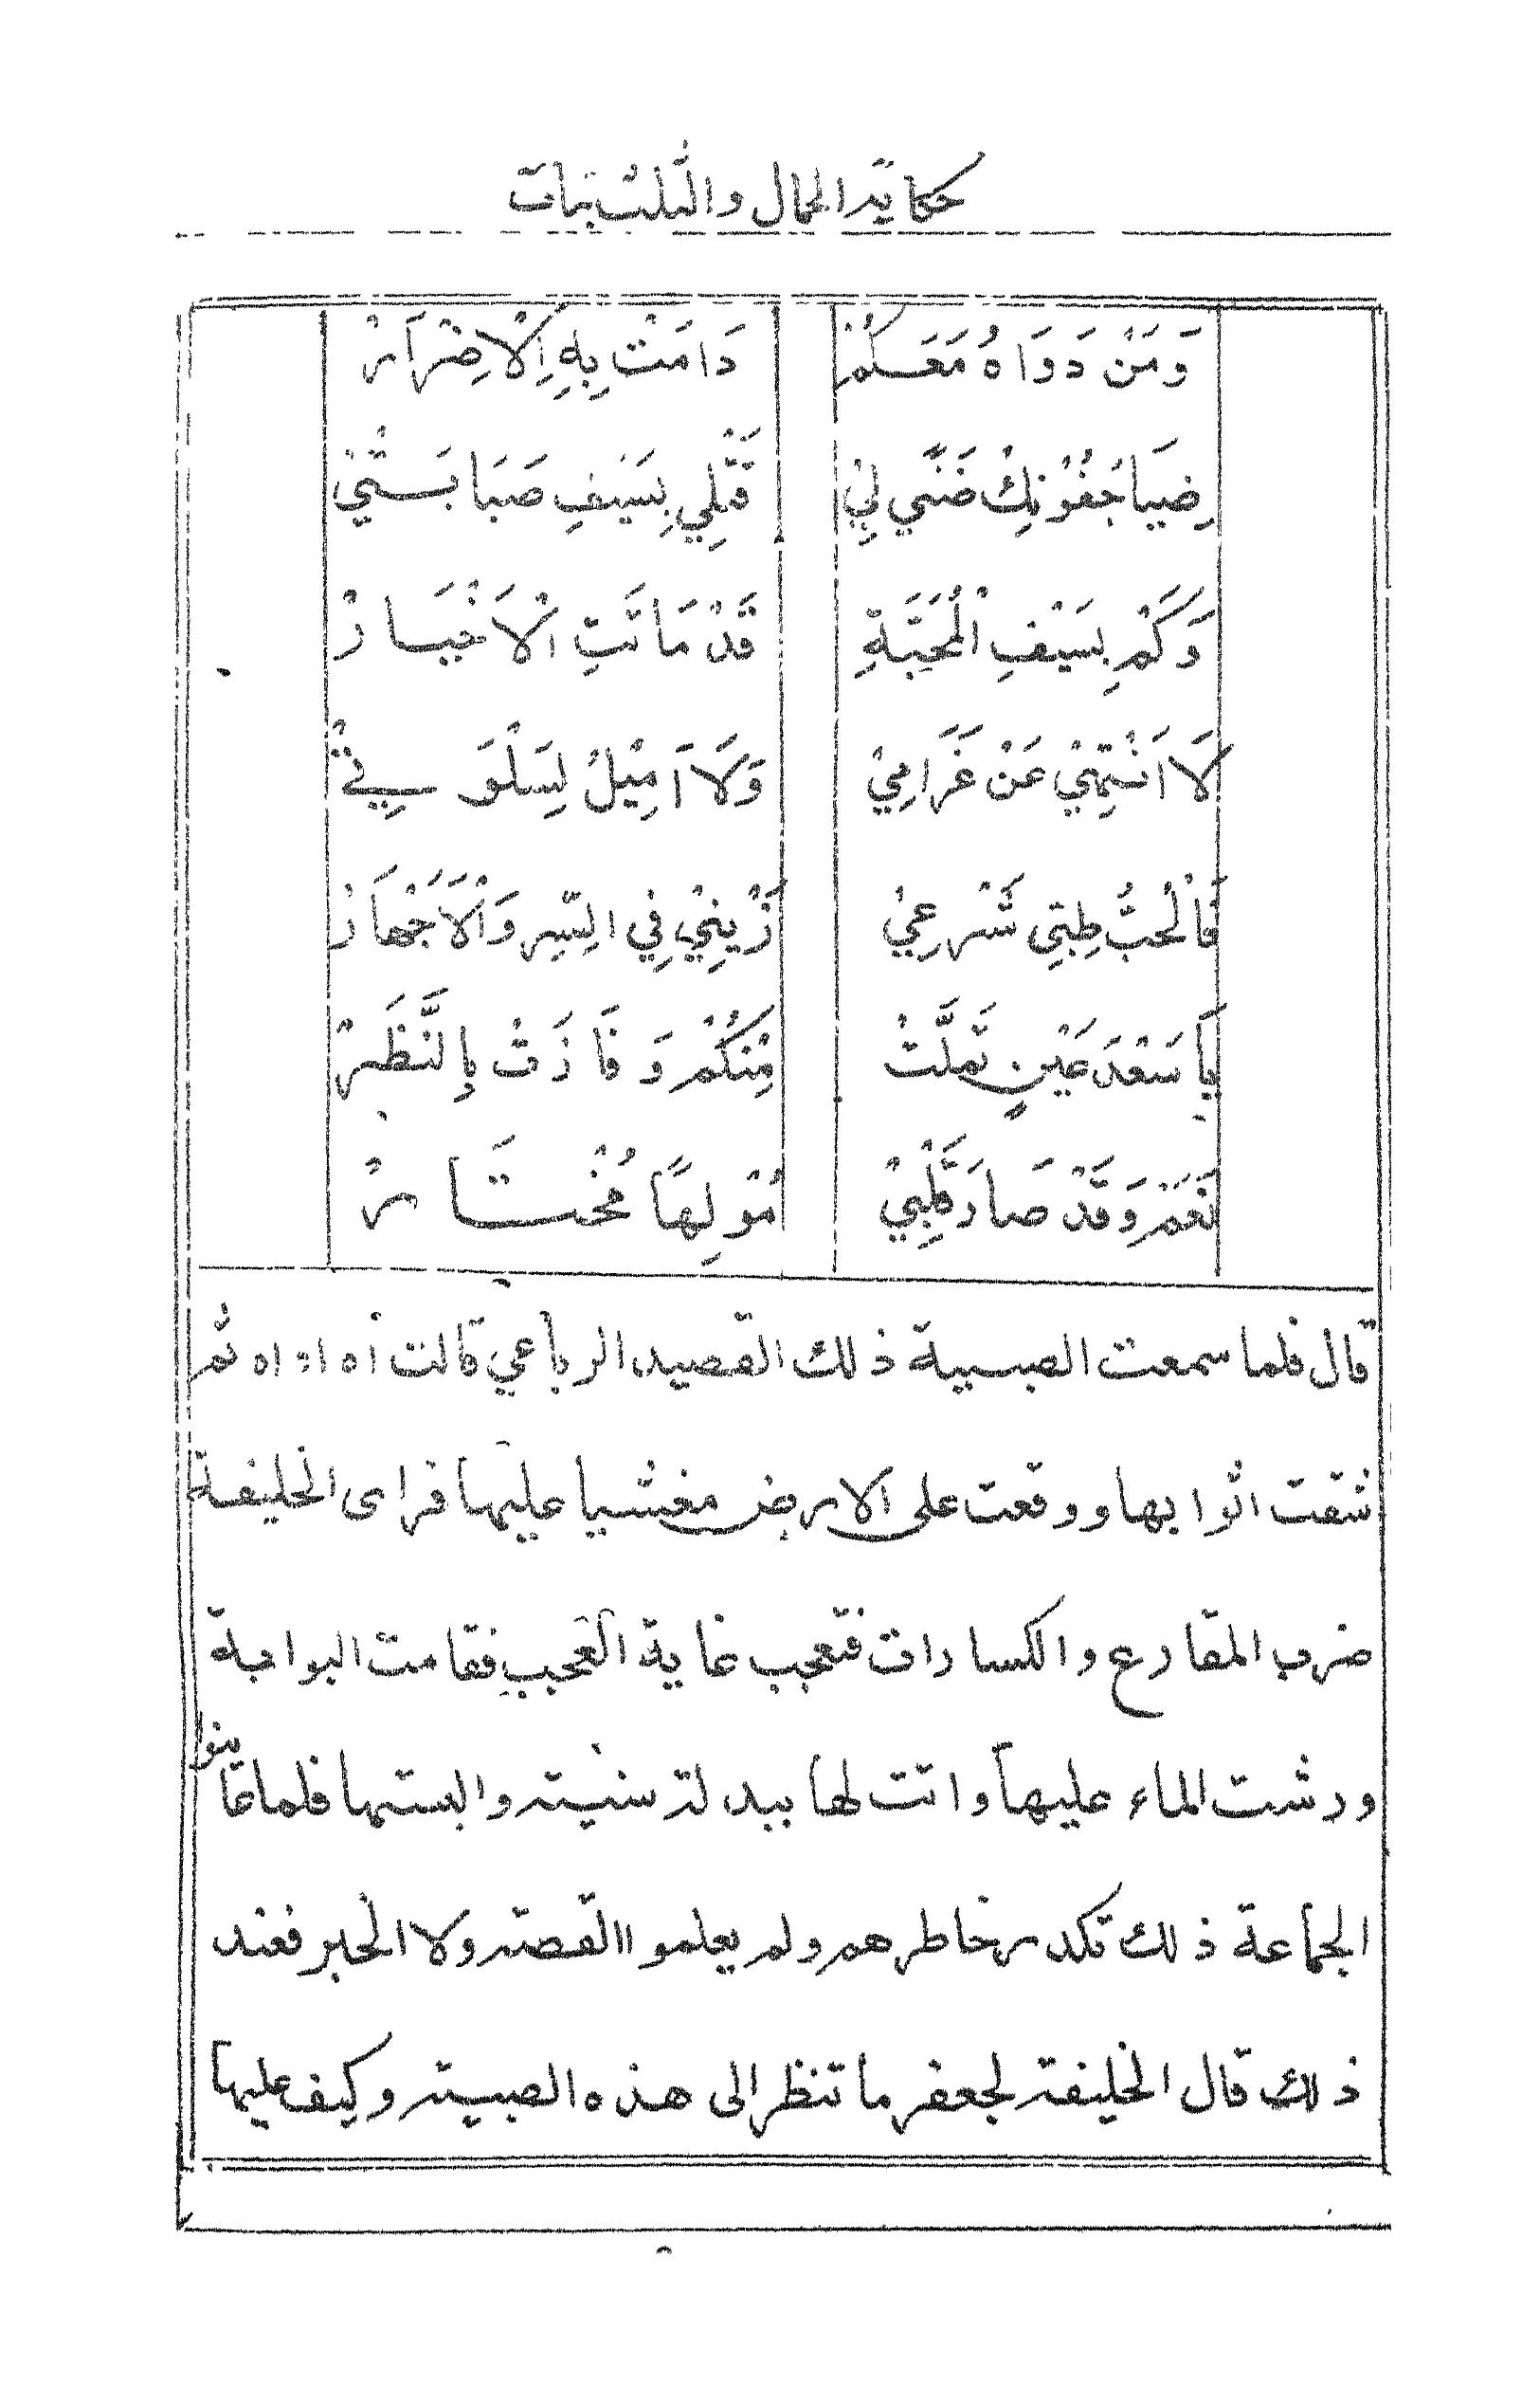 حكاية الحمال والثلث بنات
وَمَنْ دَوَاهُ مَعَكُمْ دَامَتْ بِهِ اِلْاِضْرَارْ
ضِيَا جُفُوْنِكْ ضَنًي لِيْ قَتْلِي بِسَيْفِ صَبَابَتْيْ
وَكَمْ بِسَيْفِ الْمُحَبَّةِ قَدْ مَاتَتِ الْاَخْيَارْ
لَا اَنْتِهِيْ عَنْ غَرَامِيْ وَلَا اَمِيْلْ لِسَلْوَتِيْ
فَالْحُبُّ طِبِّي شَرْعِيْ زْيِنِيْ فِي السِّرِ وَالْاَجْهَارْ
يَا سَعْدَ عَيْنٍ تَمَلَّتْ مِنْكُمْ وَفَازَتْ بِالنَّظَرْ
نَعَمْ وَقَدْ صَارَ قَلْبِيْ مُوْلِهًا مُخْتَارْ
قال فلما سمعت الصبية ذلك القصيد الرباعي قالت اه اه اه ثم
شقت اثوابها ووقعت على الارض مغشيا عليها فراى الخليفة
ضرب المقارع والكسارات فتعجب غاية العجب فقامت البوابة
ورشت الماء عليها واتت لها ببدلة سنية والبستها فلما عاينوا
الجماعة ذلك تكدر خاطرهم ولم يعلموا القصة ولا الخبر فعند
ذلك قال الخليفة لجعفر ما تنظر الى هذه الصبية وكيف عليها